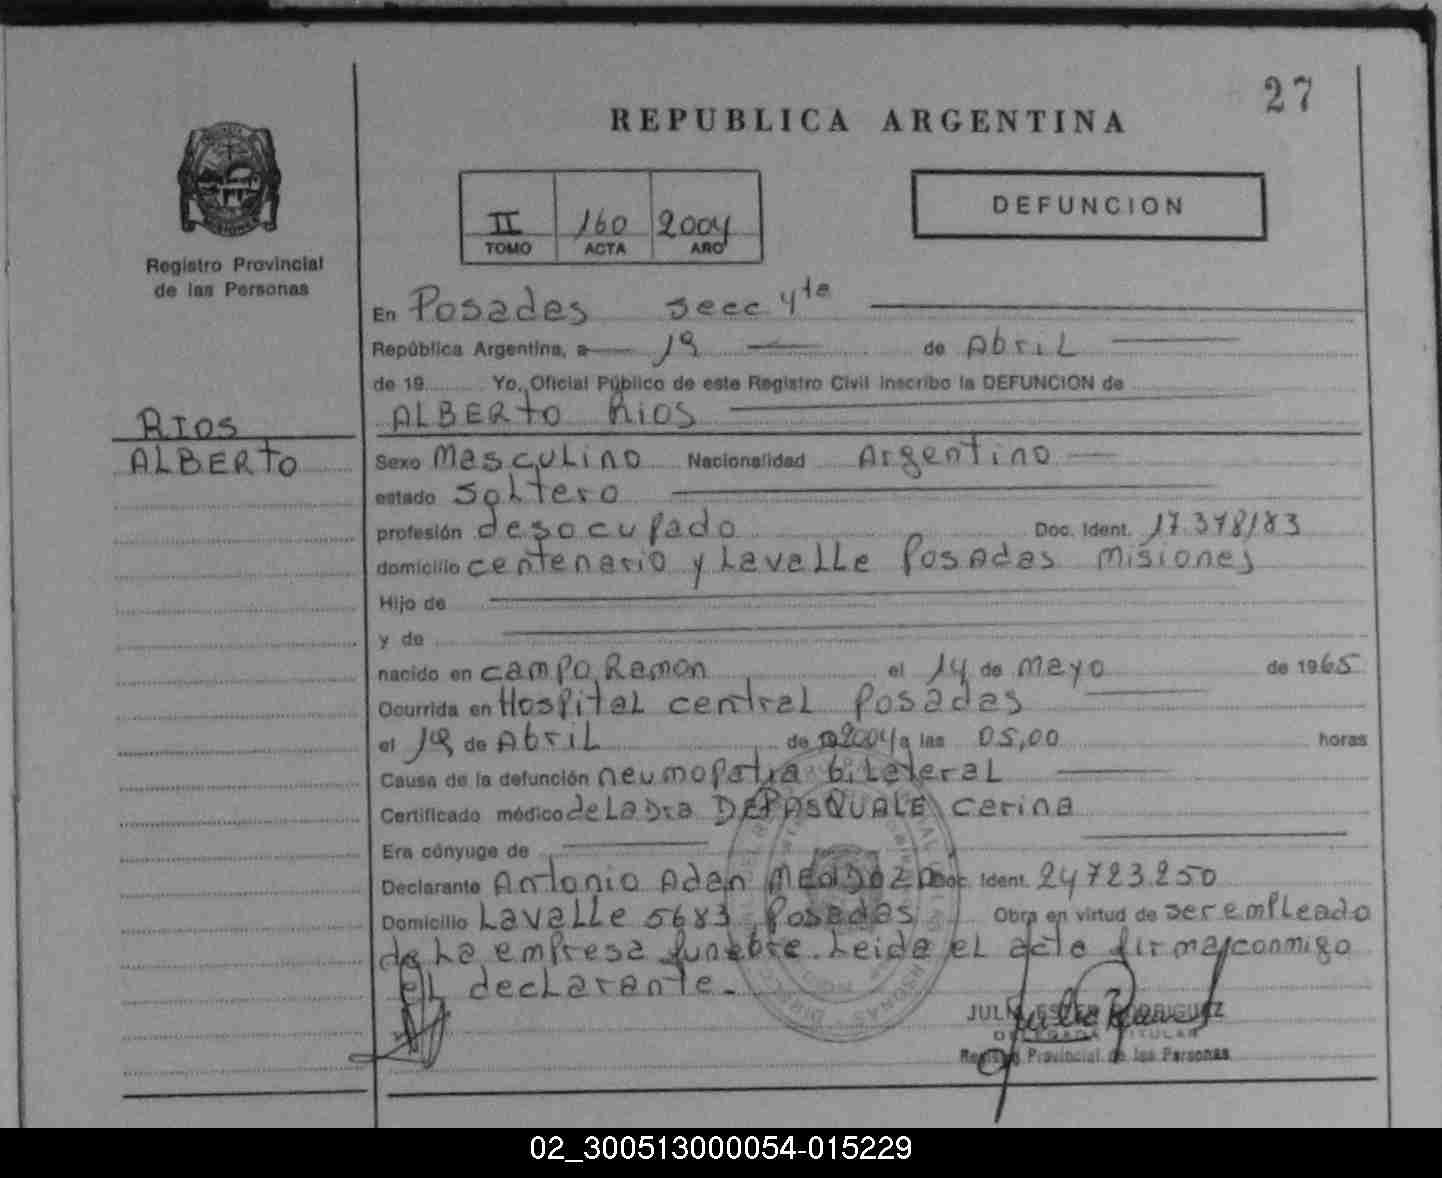 27
REPUBLICA ARGENTINA
DEFUNCION
II 160 2004
TOMO ACTA AÑO
Registro Provincial
de las Personas
En Posadas secc 4ta
República Argentina, a 19 de Abril
de 19 Yo, Oficial Público de este Registro Civil inscribo la DEFUNCION de
ALBERTO RIOS
RIOS
ALBERTO
Sexo Masculino Nacionalidad Argentino
estado Soltero
profesión desocupado Doc. Ident. 17.378/83
domicilio centenario y Lavalle Posadas Misiones
Hijo de
y de
nacido en campo Ramon el 14 de mayo de 1965
Ocurrida en Hospital central Posadas
el 19 de Abril de 2004 a las 05,00 horas
Causa de la defunción neumopatia bilateral
Certificado médico de La Dra DEPASQUALE Cerina
Era cónyuge de
Declarante Antonio Adan MENDOZA Doc. Ident. 24723.250
Domicilio Lavalle 5683 Posadas Obra en virtud de ser empleado
de La empresa funebre. Leida el acta firma conmigo
el declarante.
JULIA ESTER RODRIGUEZ
DELEGADA TITULAR
Registro Provincial de las Personas
02_300513000054-015229